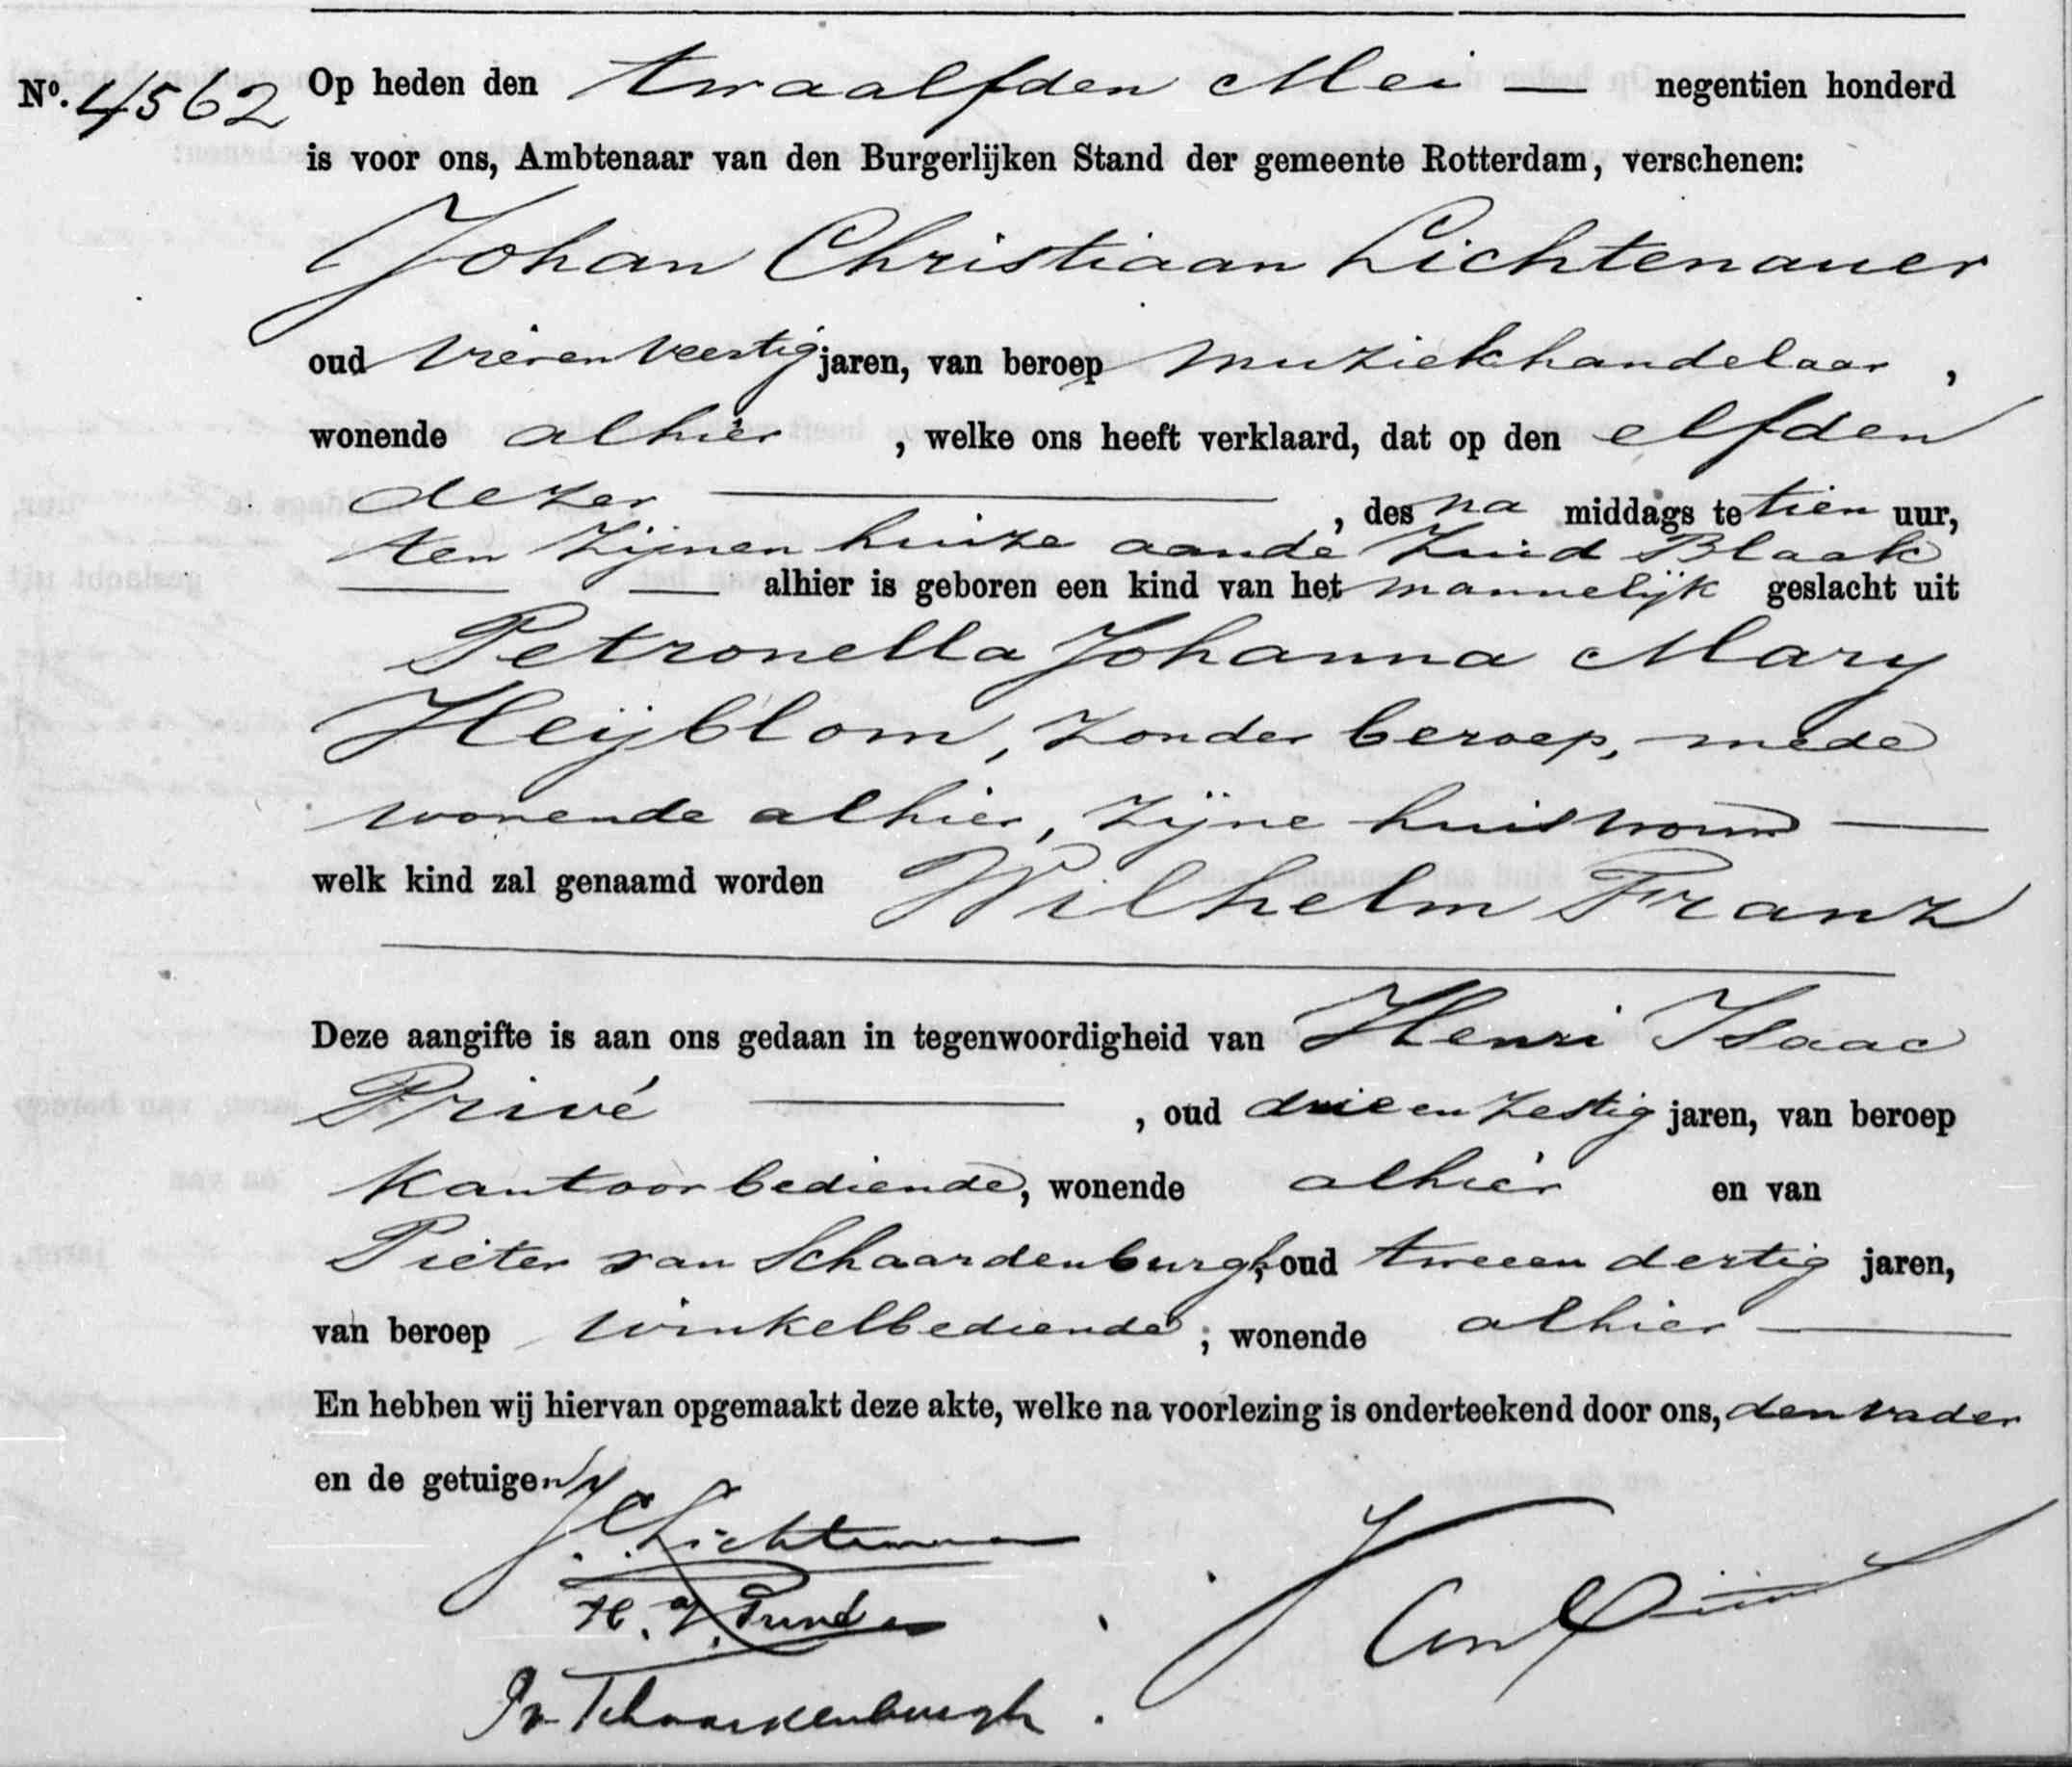 No. 4562 Op heden den twaalfden Mei — negentien honderd
is voor ons, Ambtenaar van den Burgerlijken Stand der gemeente Rotterdam, verschenen:
Johan Christiaan Lichtenauer
oud vierenveertig jaren, van beroep muziekhandelaar,
wonende alhier, welke ons heeft verklaard, dat op den elfden
dezer —, des na middags te tien uur,
ten zijnen huize aan de Zuid Blaak
— — alhier is geboren een kind van het mannelijk geslacht uit
Petronella Johanna Mary
Heijblom, zonder beroep, mede
wonende alhier, zijne huisvrouw —
welk kind zal genaamd worden Wilhelm Franz
Deze aangifte is aan ons gedaan in tegenwoordigheid van Henri Isaac
Privé —, oud drieenzestig jaren, van beroep
kantoorbediende, wonende alhier en van
Pieter van Schaardenburgh, oud tweeendertig jaren,
van beroep winkelbediende; wonende alhier —
En hebben wij hiervan opgemaakt deze akte, welke na voorlezing is onderteekend door ons, den vader
en de getuigen
J.C. Lichtenauer
H. I. Privé
P v Schaardenburgh.